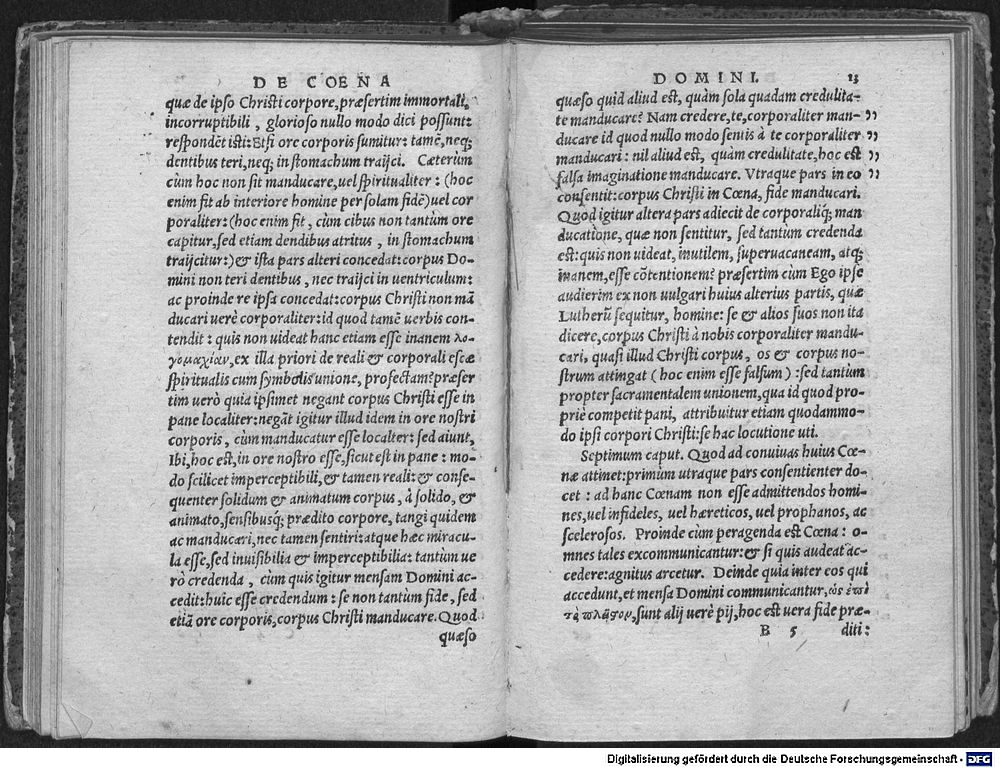 DE COENA
quæ de ipso Christi corpore, præsertim immortali,
incorruptibili, glorioso nullo modo dici possunt:
respondēt isti: Etsi ore corporis sumitur: tamē, neq;
dentibus teri, neq; in stomachum traijci. Cæterùm
cùm hoc non sit manducare, uel spiritualiter: (hoc
enim fit ab interiore homine per solam fidē) uel cor
poraliter: (hoc enim fit, cùm cibus non tantùm ore
capitur, sed etiam dendibus atritus, in stomachum
traijcitur:) & ista pars alteri concedat: corpus Do-
mini non teri dentibus, nec traijci in uentriculum:
ac proinde re ipsa concedat: corpus Christi non mā
ducari uerè corporaliter: id quod tamē uerbis con-
tendit: quis non uideat hanc etiam esse inanem λο-
γομαχίαν, ex illa priori de reali & corporali escæ
spiritualis cum symbolis unione, profectam? præser
tim uerò quia ipsimet negant corpus Christi esse in
pane localiter: negāt igitur illud idem in ore nostri
corporis, cùm manducatur esse localter: sed aiunt,
Ibi, hoc est, in ore nostro esse, sicut est in pane: mo-
do scilicet imperceptibili, & tamen reali: & conse-
quenter solidum & animatum corpus, à solido, &
animato, sensibusq; prædito corpore, tangi quidem
ac manducari, nec tamen sentiri: atque hæc miracu-
la esse, sed inuisibilia & imperceptibilia: tantùm ue
rò credenda, cùm quis igitur mensam Domini ac-
cedit: huic esse credendum: se non tantùm fide, sed
etiā ore corporis, corpus Christi manducare. Quod
quæso
DOMINI. 13
quæso quid aliud est, quàm sola quadam credulita-
te manducare? Nam credere, te, corporaliter man- ”
ducare id quod nullo modo sentis à te corporaliter ”
manducari: nil aliud est, quàm credulitate, hoc est ”
falsa imaginatione manducare. Vtraque pars in eo ”
consentit: corpus Christi in Cœna, fide manducari.
Quod igitur altera pars adiecit de corporaliq; man
ducatione, quæ non sentitur, sed tantùm credenda
est: quis non uideat, inutilem, superuacaneam, atq;
inanem, esse cōtentionem? præsertim cùm Ego ipse
audierim ex non uulgari huius alterius partis, quæ
Lutherū sequitur, homine: se & alios suos non ita
dicere, corpus Christi à nobis corporaliter mandu-
cari, quasi illud Christi corpus, os & corpus no-
strum attingat (hoc enim esse falsum): sed tantùm
propter sacramentalem unionem, qua id quod pro-
priè competit pani, attribuitur etiam quodammo-
do ipsi corpori Christi: se hac locutione uti.
Septimum caput. Quod ad conuiuas huius Cœ-
næ attinet: primùm utraque pars consentienter do-
cet: ad hanc Cœnam non esse admittendos homi-
nes, uel infideles, uel hæreticos, uel prophanos, ac
scelerosos. Proinde cùm peragenda est Cœna: o-
mnes tales excommunicantur: & si quis audeat ac-
cedere: agnitus arcetur. Deinde quia inter eos qui
accedunt, et mensa Domini communicantur, ὡς ἐπὶ
τὸ πλῆθος, sunt alij uerè pij, hoc est uera fide præ-
B 5 diti:
Digitalisierung gefördert durch die Deutsche Forschungsgemeinschaft - DFG